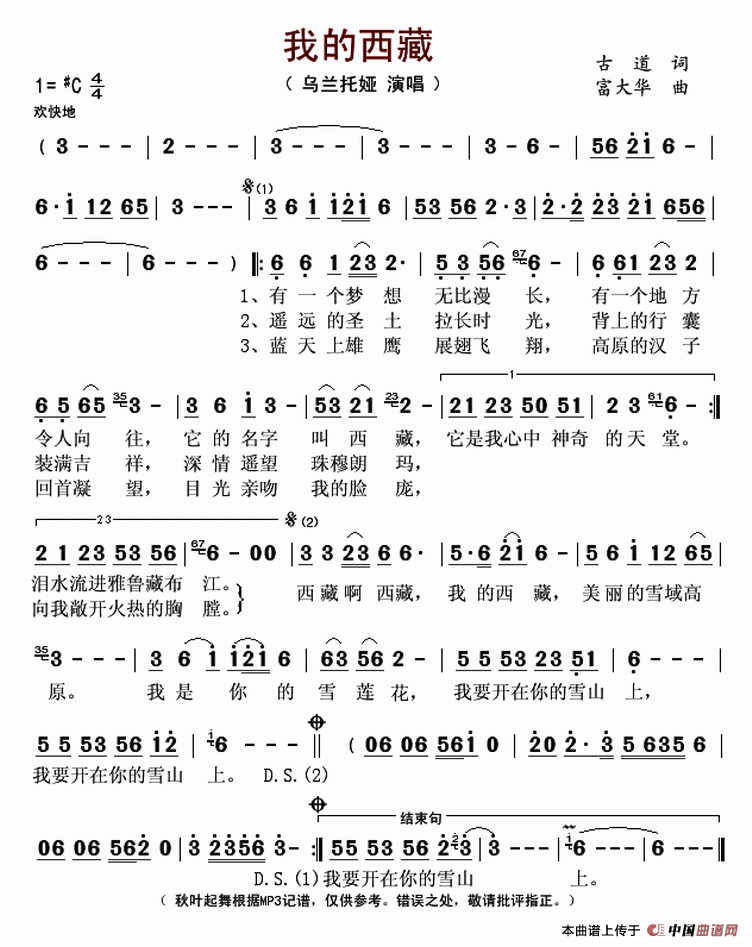 我的西藏
（ 乌兰托娅 演唱 ）
古 道 词
富大华 曲
1= #C 4/4
欢快地
( 3 - - - | 2 - - - | 3 - - - | 3 - - - | 3 - 6 - | 56 21 6 - |
6 · 1 12 65 | 3 - - - | 𝄋(1) 3 6 1 121 6 | 53 56 2 · 3 | 2 · 2 23 21 656 |
6 - - - | 6 - - - ) |: 6 6 1 23 2· | 5 3 56 67 6 - | 6 61 23 2 |
1、有 一 个梦 想 无比漫 长， 有一个地 方
2、遥 远 的圣 土 拉长时 光， 背上的行 囊
3、蓝 天 上雄 鹰 展翅飞 翔， 高原的汉 子
1
6 5 65 35 3 - | 3 6 1 3 | 53 21 23 2 - | 21 23 50 51 | 2 3 61 6 - :|
令人向 往， 它 的 名字 叫 西 藏， 它是我心中 神奇 的 天 堂。
装满吉 祥， 深 情 遥望 珠穆朗 玛，
回首凝 望， 目 光 亲吻 我的脸 庞，
2 3
𝄋(2)
2 1 23 53 56 | 67 6 - 00 | 3 3 23 6 6· | 5 · 6 21 6 - | 5 6 1 6 12 65 |
泪水流进雅鲁藏布 江。 西藏啊 西藏， 我 的西 藏， 美丽的雪域高
向我敞开火热的胸 膛。
35 3 - - - | 3 6 1 121 6 | 63 56 2 - | 55 53 23 51 | 6 - - - |
原。 我 是 你 的 雪 莲 花， 我要开在你的雪山 上，
5 5 53 56 12 | 1 6 - - - || ( 06 06 561 0 | 20 2· 3 5 635 6 |
我要开在你的雪山 上。 D.S.(2)
结束句
06 06 562 0 | 3 2356 3 - :| 55 53 56 2 3 | 3 - - 1 | 6 - - - | 6 - - - :|
D.S.(1)我要开在你的雪山 上。
（ 秋叶起舞根据MP3记谱，仅供参考。错误之处，敬请批评指正。）
本曲谱上传于 中国曲谱网